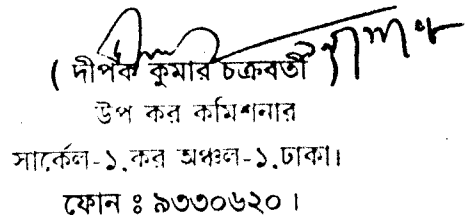 ( দীপক কুমার চক্রবর্তী )
উপ কর কমিশনার
সার্কেল-১, কর অঞ্চল-১, ঢাকা।
ফোন ঃ ৯৩৩০৬২০ ।